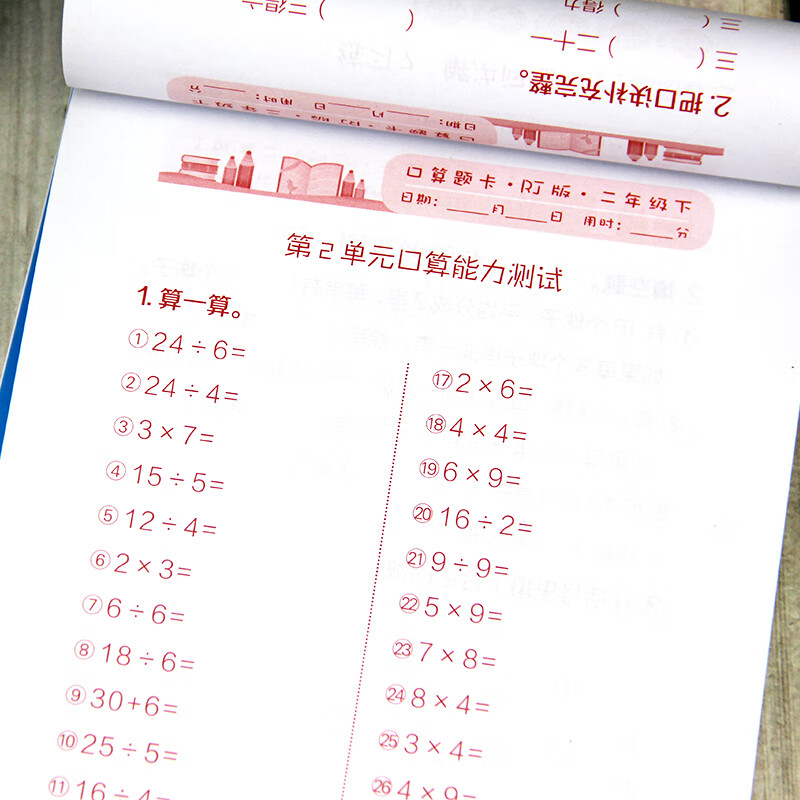 三（　　）得六　三（　　）得力
三（　　）二十一
2. 把口诀补充完整。
口算题卡·RJ版·二年级下
日期：____月____日 用时：____分
口算题卡·RJ版·二年级下
日期：____月____日 用时：____分
第2单元口算能力测试
1. 算一算。
①24÷6=
②24÷4=
③3×7=
④15÷5=
⑤12÷4=
⑥2×3=
⑦6÷6=
⑧18÷6=
⑨30+6=
⑩25÷5=
⑪16÷4=
⑰2×6=
⑱4×4=
⑲6×9=
⑳16÷2=
㉑9÷9=
㉒5×9=
㉓7×8=
㉔8×4=
㉕3×4=
㉖4×9=